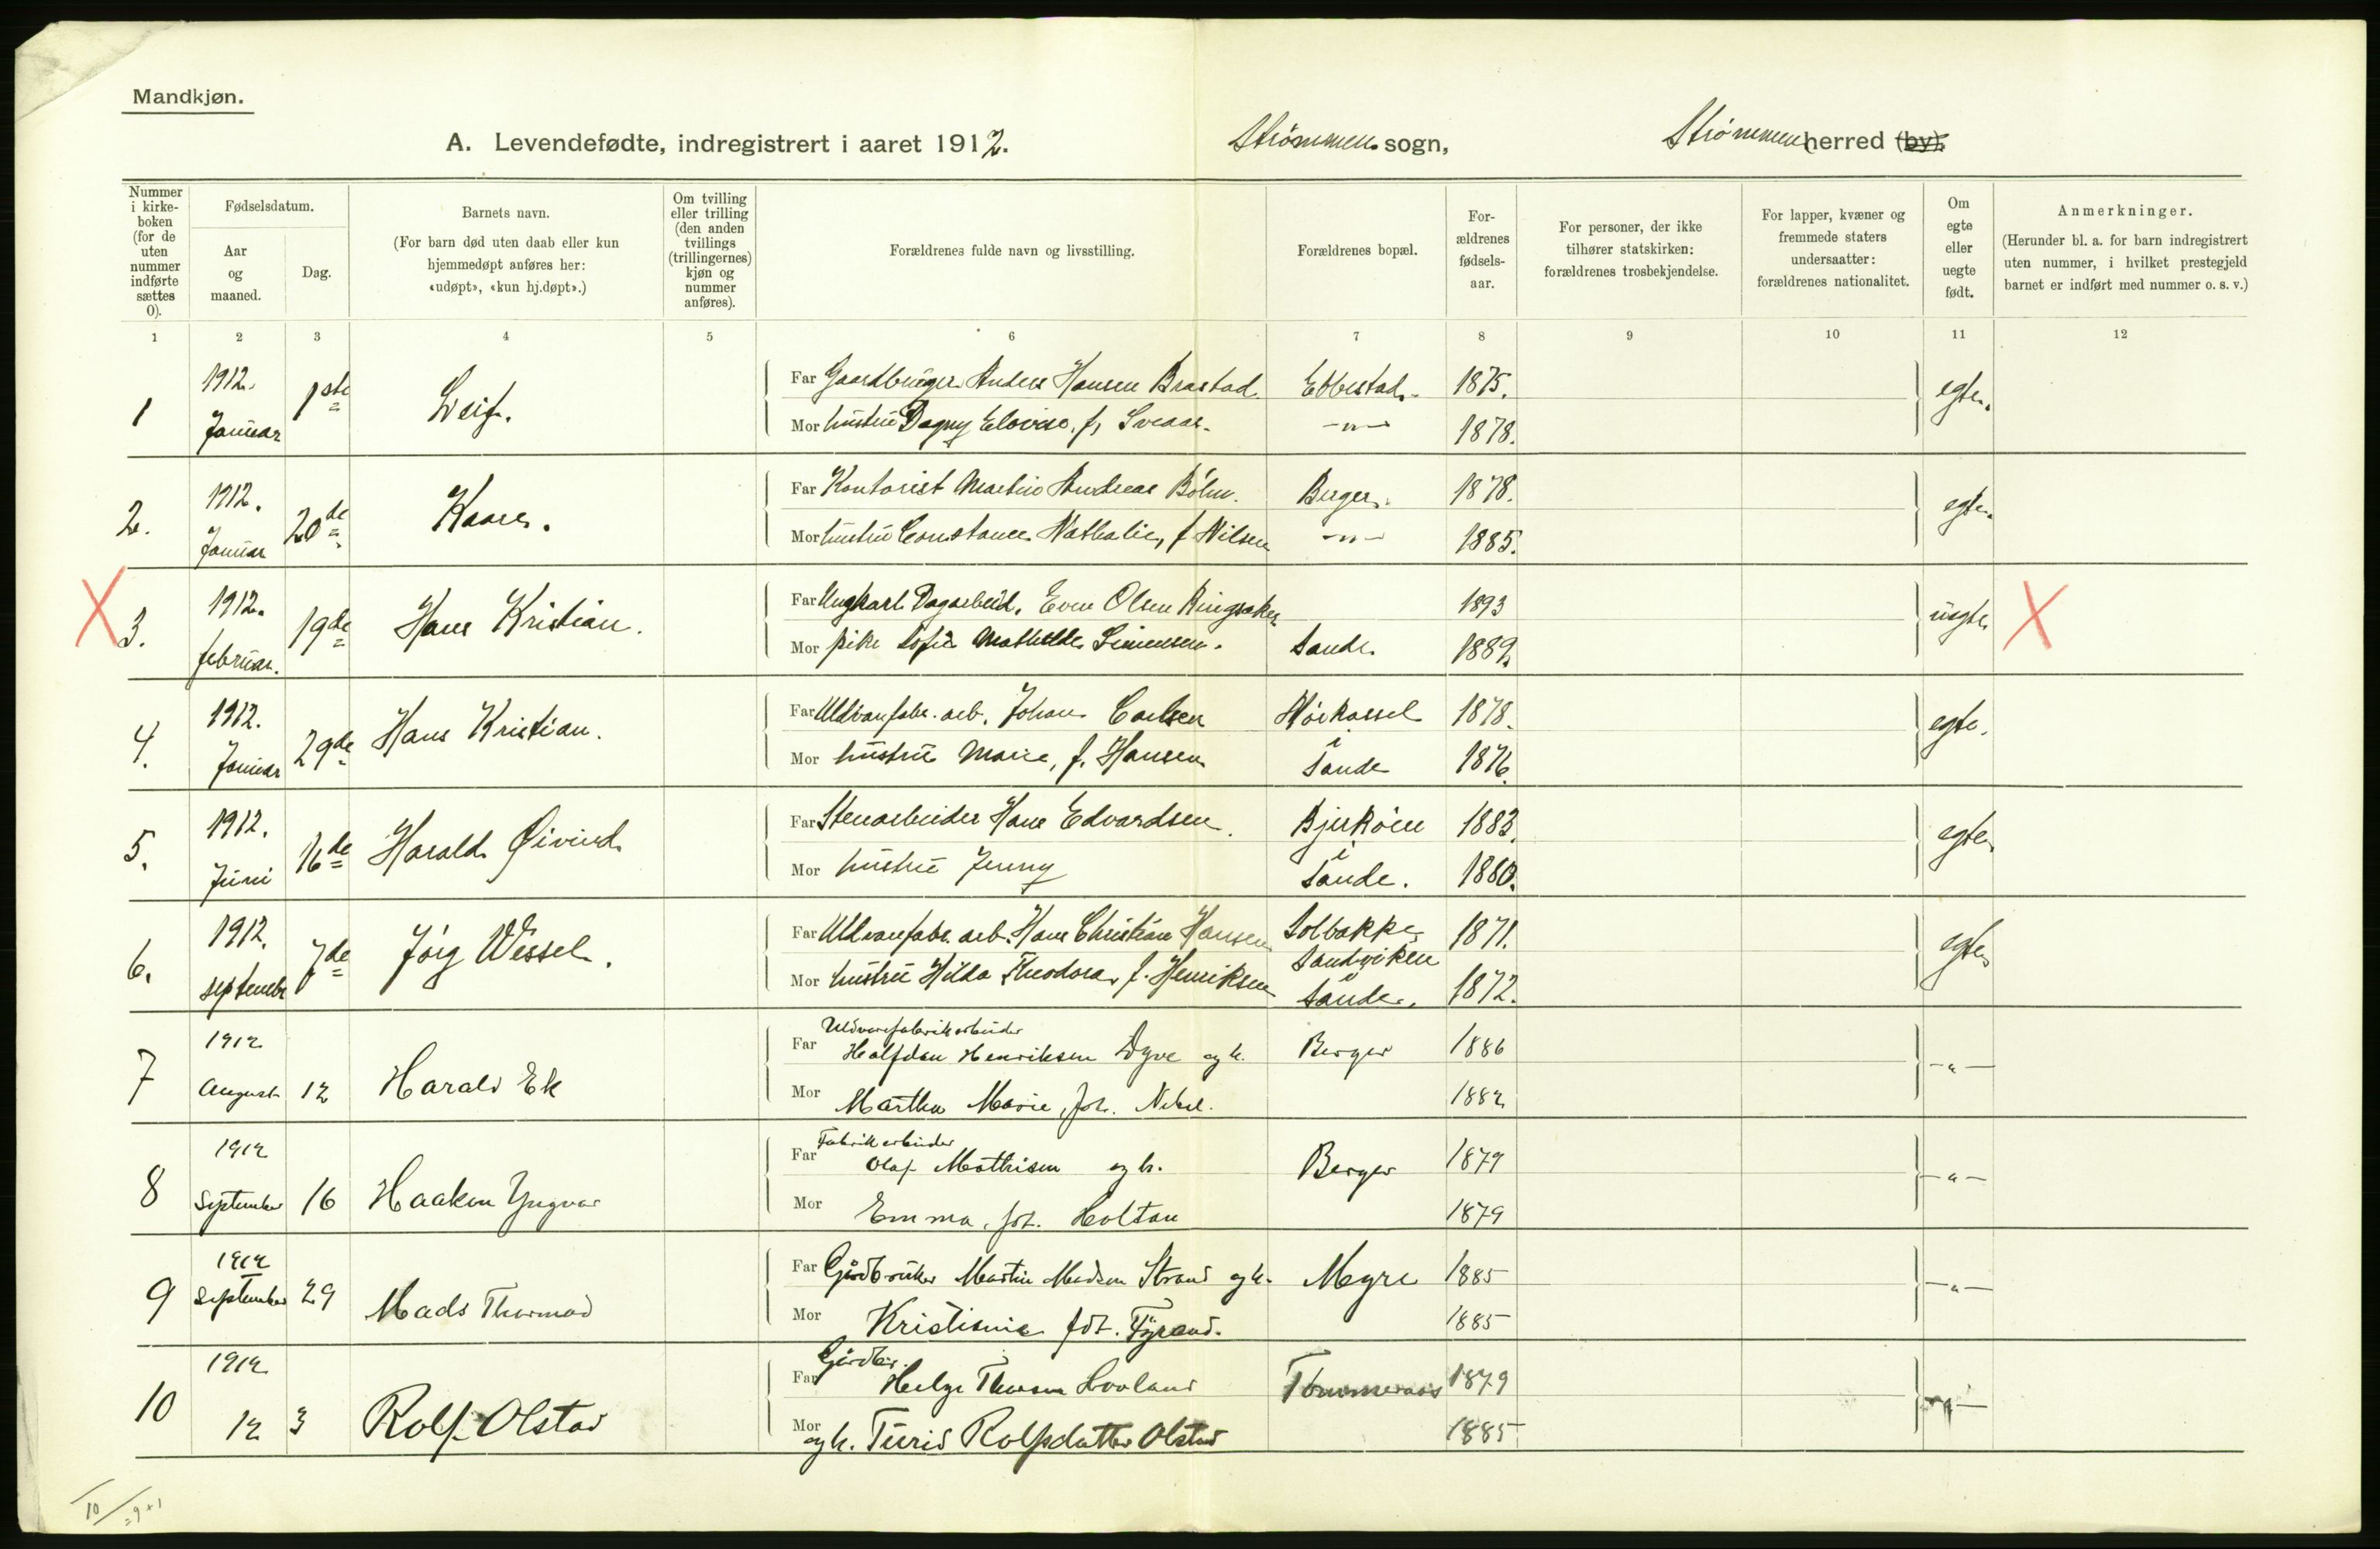 Mandkjøn.
A. Levendefødte, indregistrert i aaret 1912. Strømmen sogn, Strømmen herred (by).
Nummer i kirke-boken (for de uten nummer indførte sættes 0).
Fødselsdatum.
Aar og maaned.
Dag.
Barnets navn.
(For barn død uten daab eller kun hjemmedøpt anføres her: «udøpt», «kun hj.døpt».)
Om tvilling eller trilling (den anden tvillings (trillingernes) kjøn og nummer anføres).
Forældrenes fulde navn og livsstilling.
Forældrenes bopæl.
For-ældrenes fødsels-aar.
For personer, der ikke tilhører statskirken: forældrenes trosbekjendelse.
For lapper, kvæner og fremmede staters undersaatter: forældrenes nationalitet.
Om egte eller uegte født.
Anmerkninger.
(Herunder bl. a. for barn indregistrert uten nummer, i hvilket prestegjeld barnet er indført med nummer o. s. v.)
1 2 3 4 5 6 7 8 9 10 11 12
1 1912. Januar 1ste Leif.
Far Gaardbruger Anders Hansen Brastad Ebbestad. 1875. egte.
Mor hustru Dagny Elovise, f, Sveaas. -"- 1878.
2. 1912. Januar 20de Kaare.
Far Kontorist Martin Andreas Böhn. Berger. 1878. egte.
Mor hustru Constance Nathalie, f Nilsen -"- 1885.
X 3. 1912. februar. 19de Hans Kristian.
Far Ungkarl Dagarbeid. Even Olsen Ringsaker 1893 uegte X
Mor pike Sofie Mathilde Simensen. Sande. 1889.
4. 1912. Januar 29de Hans Kristian.
Far Uldvarefabr. arb. Johan Carlsen 1878. egte.
Mor hustru Marie, f. Hansen i Sande 1876.
5. 1912. Juni 16de Harald Øivind
Far Stenarbeider Hans Edvardsen. 1883. egte
Mor hustru Jenny i Sande. 1880.
6. 1912. septembr 7de Jörg Wessel.
Far Uldvarefabr. arb. Hans Christian Hansen Solbakke, Sandviken 1871. egte
Mor hustru Hilda Theodora, f. Henriksen i Sande. 1872.
7 1912 August 12 Harald Ek
Far Uldvarefabrikarbeider Halfdan Henriksen Dyve og h. Berger 1886 -"-
Mor Martha Marie, föt. 1882
8 1912 September 16 Haakon Yngvar
Far Fabrikarbeider Olaf Mathisen og h. Berger 1879 -"-
Mor Emma, föt. Holtan 1879
9 1912 September 29 Mads Thormod
Far Gårdbruker Martin Madsen Strand og h. Myre 1885 -"-
Mor Kristiane föt. 1885
10 1912 12 3 Rolf Olstad
Far Gårdbr. Helge Thorsen Hovland Tömmeraas 1879 -"-
Mor og h. Turid Rolfsdatter Olstad 1885
10 = 9 + 1